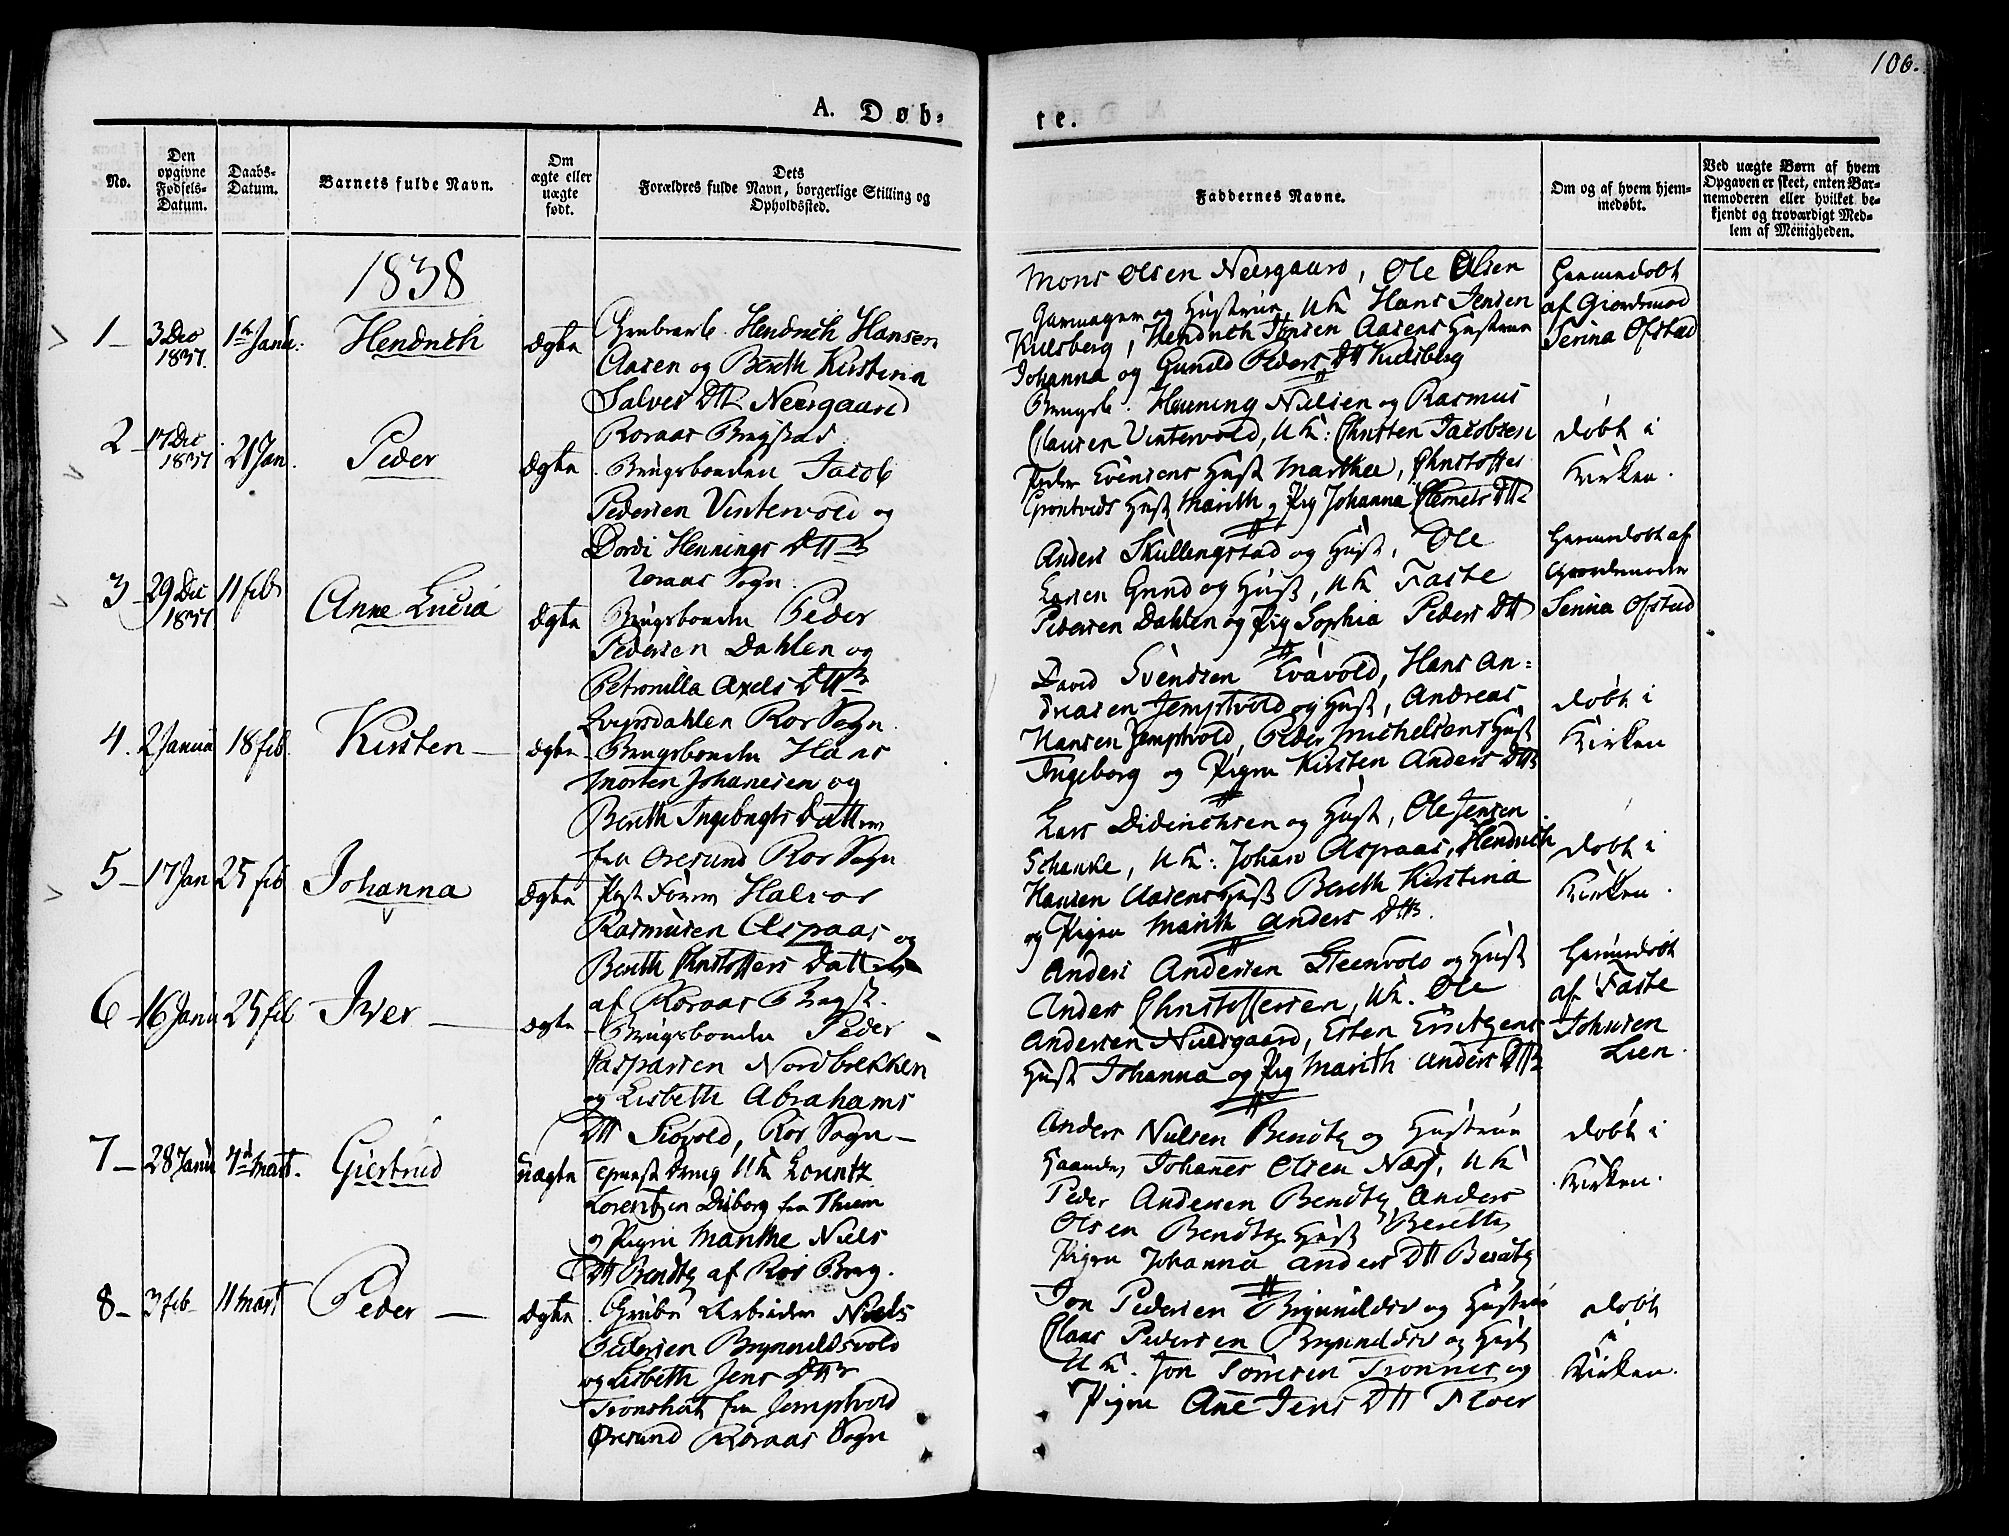 106.
A. Døb-
te.
No.
Den
opgivne
Fødsels-
Datum.
Daabs-
Datum.
Barnets fulde Navn.
Om
ægte eller
uægte
født.
Dets
Forældres fulde Navn, borgerlige Stilling og
Opholdssted.
Faddernes Navne.
Om og af hvem hjem-
medøbt.
Ved uægte Børn af hvem
Opgaven er skeet, enten Bar-
nemoderen eller hvilket be-
kjendt og troværdigt Med-
lem af Menigheden.
1838
1 –
3 Dec
1837.
1te Janu.
Hendrich
Ægte
Hendrich Hansen
Aasen og Bereth Kirstina
Salves Dtt Neergaard
Roraas Bergstad
Mons Olsen Neergaard, Ole Olsen
Garmager og Hustrue, UK Hans Jensen
Kulsberg, Hendrich Jensen Aasens Hustrue
Johanna og Gunild Peders Dtt Kulsberg
Hiemedøbt
af Giordemod
Serina Ofstad
2 –
17 Dec
1837
21 Jan.
Peder
Ægte
Brugsbonden Jacob
Pedersen Vintervold og
Dordi Hennings Dttr
Roraas Sogn.
Henning Nielsen og Rasmus
Clausen Vintervold, UK: Christen Jacobsen
Peder Evensens Hust Marthe, Christoffer
Grontveds Hust Marith og Pig Johanna Clemets Dttr
døbt i
Kirken.
3 –
29 Dec
1837
11 feb
Anne Lucia
Ægte
Brugsbonden Peder
Pedersen Dahlen og
Petronilla Axels Dttr
Dahlen Ror Sogn.
Anders Skullengstad og Hust, Ole
Larsen Grund og Hust, UK Faste
Pedersen Dahlen og Pig Sophia Peders Dtt
Hiemedøbt af
Giordemoder
Serina Ofstad
4.
2 Janua
18 feb.
Kirsten –
Ægte
Brugsbonden Hans
Morten Johanesen og
Bereth Ingebrigts Datter
fra Oresund Ror Sogn
David Svendsen Evavold, Hans An-
dreasen Jemptvold og Hust, Andreas
Hansen Jemptvold, Peder Michelsens Hust
Ingeborg og Pigen Kirsten Anders Dttr
døbt i
Kirken
5 –
17 Jan
25 feb
Johanna
Ægte
Halvor
Rasmusen Aspaas og
Bereth Christoffers Datter
af Roraas Bergst.
Lars Diderichsen og Hust, Ole Jensen
Schanke, UK: Johan Aspaas, Hendrich
Hansen Aasens Hust Bereth Kirstina
og Pigen Marith Anders Dttr.
døbt i
Kirken.
6 –
16 Janu
25 feb
Iver –
Ægte
Brugsbonden Peder
Caspersen Nordbrekken
og Lisbeth Abrahams
Dtt Siovold, Ror Sogn –
Anders Andersen Steenvold og Hust
Anders Christoffersen, UK. Ole
Andersen Neergaard, Esten
Hust Johanna og Pig Marith Anders Dttr
Hiemedøbt
af Faste
Johnsen
Lien.
7 –
28 Janu
4de Mart.
Giertrud
Uægte
UK Lorentz
Lorentzen Disborg fra Thiem
og Pigen Marithe Niels
Dtt Bendtz af Ror Berg.
Anders Nielsen Bendtz og Hustrue
Johanes Olsen Næss, UK
Peder Andersen Bendtz, Anders
Olsen Bendtz Hust Berethe
Pigen Johanna Anders Dtt Bendtz
døbt i
Kirken.
8 –
3 feb
11 Mart
Peder –
Ægte
Grube Arbeider Niels
Pedersen Brynnildsvold
og Lisbeth Jens Dttr
fra Jemptvold
Øresund Roraas Sogn
Jon Pedersen Brynnildsv og Hustrue
Claas Pedersen Brynnildsv og Hust
UK. Jon Tomesen Tronnes og
Pigen Ane Jens Dtt Floer
døbt
i
Kirken.